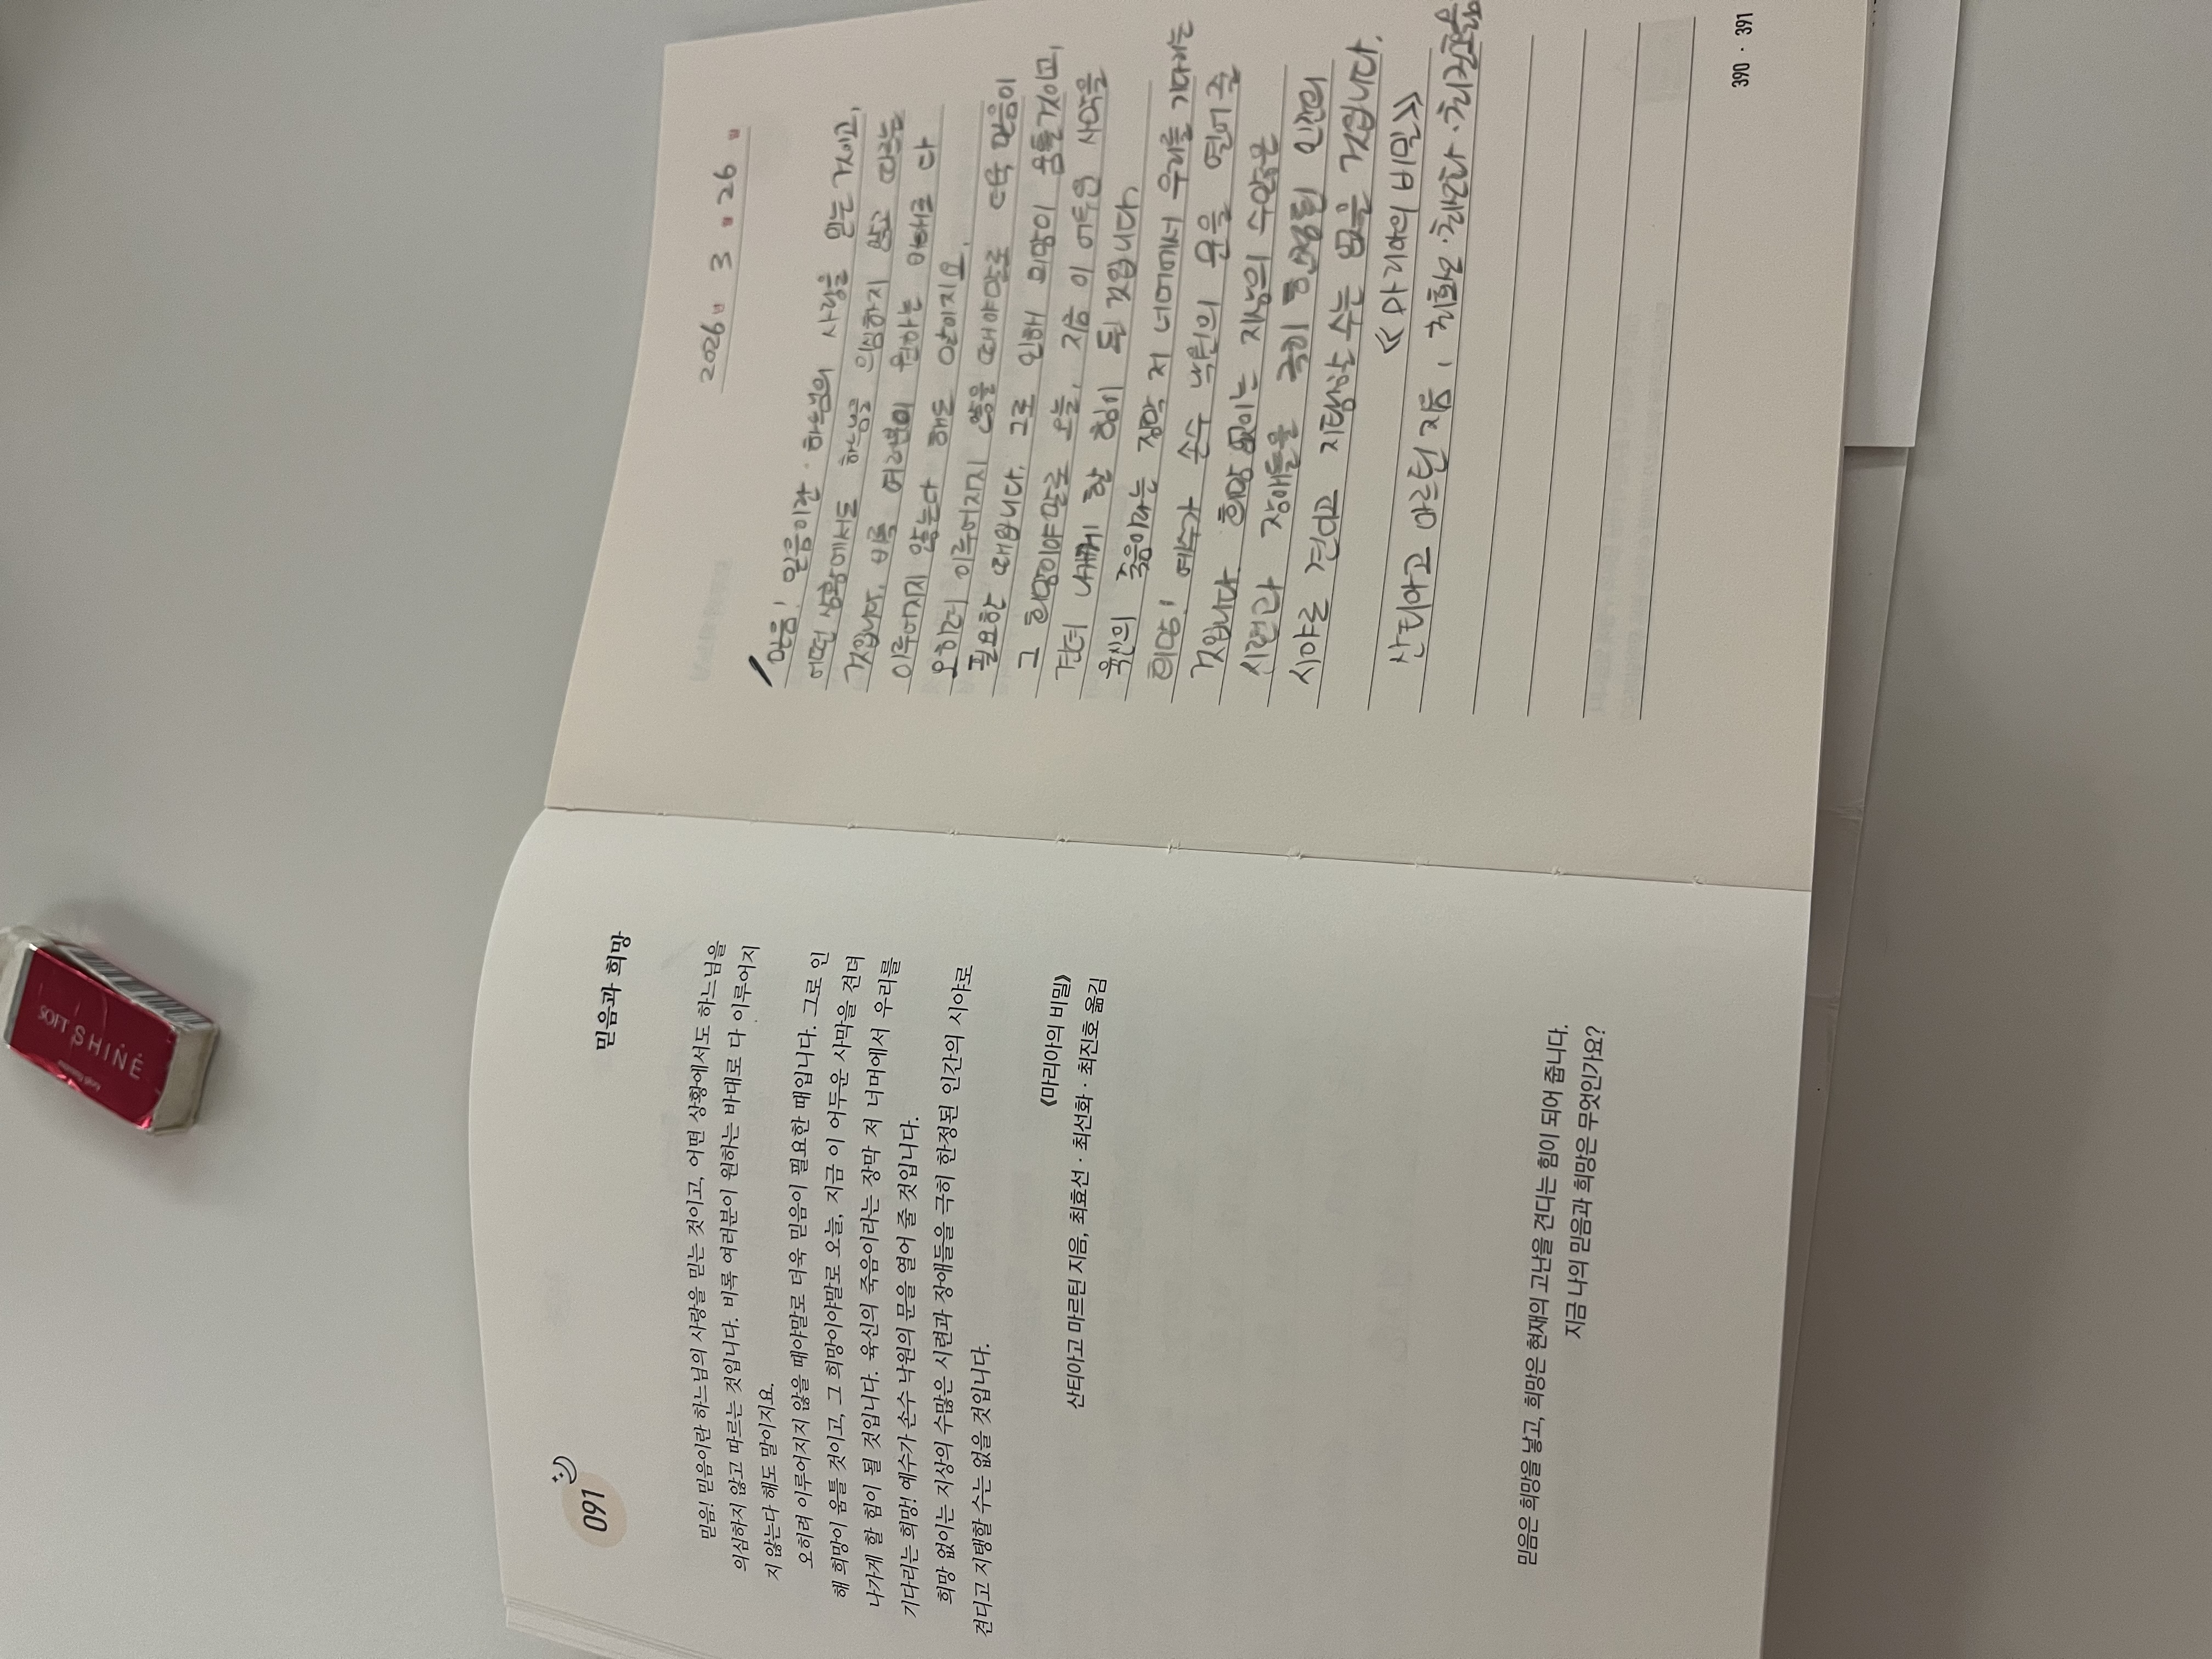 091
믿음과 희망
믿음! 믿음이란 하느님의 사랑을 믿는 것이고, 어떤 상황에서도 하느님을
의심하지 않고 따르는 것입니다. 비록 여러분이 원하는 바대로 다 이루어지
지 않는다 해도 말이지요.
오히려 이루어지지 않을 때야말로 더욱 믿음이 필요한 때입니다. 그로 인
해 희망이 움틀 것이고, 그 희망이야말로 오늘, 지금 이 어두운 사막을 견뎌
나가게 할 힘이 될 것입니다. 육신의 죽음이라는 장막 저 너머에서 우리를
기다리는 희망! 예수가 손수 낙원의 문을 열어 줄 것입니다.
희망 없이는 지상의 수많은 시련과 장애들을 극히 한정된 인간의 시야로
견디고 지탱할 수는 없을 것입니다.
《마리아의 비밀》
산티아고 마르틴 지음, 최효선 · 최선화 · 최진호 옮김
믿음은 희망을 낳고, 희망은 현재의 고난을 견디는 힘이 되어 줍니다.
지금 나의 믿음과 희망은 무엇인가요?
2026 . 3 . 26 .
믿음! 믿음이란 하느님의 사랑을 믿는 것이고,
어떤 상황에서도 하느님을 의심하지 않고 따르는
것입니다. 비록 여러분이 원하는 바대로 다
이루어지지 않는다 해도 말이지요.
오히려 이루어지지 않을 때야말로 더욱 믿음이
필요한 때입니다. 그로 인해 희망이 움틀 것이고,
그 희망이야말로 오늘, 지금 이 어두운 사막을
견뎌 나가게 할 힘이 될 것입니다.
육신의 죽음이라는 장막 저 너머에서 우리를 기다리는
희망! 예수가 손수 낙원의 문을 열어 줄
것입니다. 희망 없이는 지상의 수많은
시련과 장애들을 극히 한정된 인간의
시야로 견디고 지탱할 수는 없을 것입니다.
《마리아의 비밀》
산티아고 마르틴 지음,
390 · 391
SOFT
SHINE